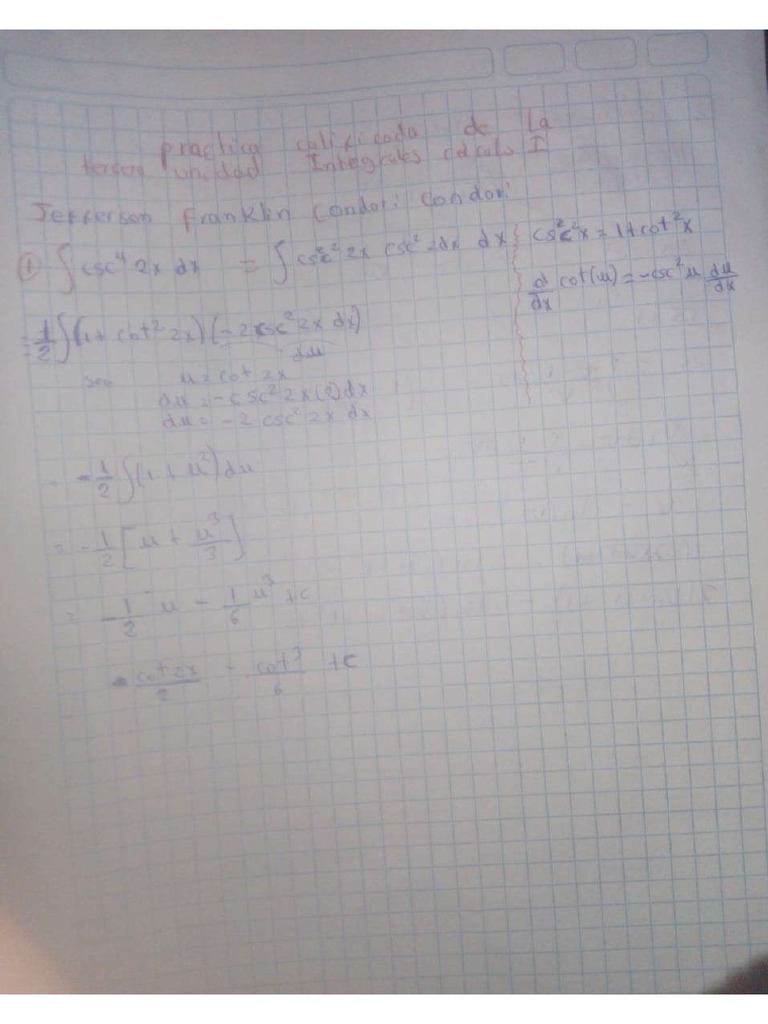 practica calificada de la
tercera unidad Integrales cálculo I
Jefferson Franklin Condori Condori
① ∫ csc⁴ 2x dx = ∫ csc² 2x csc² 2x dx
csc²x = 1+cot²x
d/dx cot(u) = -csc² u du/dx
= -1/2 ∫ (1 + cot² 2x) (-2 csc² 2x dx)
du
sea u = cot 2x
du = -csc² 2x (2) dx
du = -2 csc² 2x dx
- 1/2 ∫ (1 + u²) du
= -1/2 [u + u³/3]
= -1/2 u - 1/6 u³ + c
- cot 2x/2 - cot³/6 + c